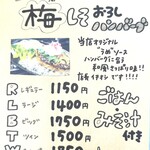 梅しそおろし
ハンバーグ
当店オリジナル
うめソース
ハンバーグに合う
和風さっぱり味です!!
店長イチオシです!!!!
R レギュラー 1150円
L ラージ 1400円
B ビッグ 1950円
T ツイン 1500円
W
ごはん
みそ汁
付き